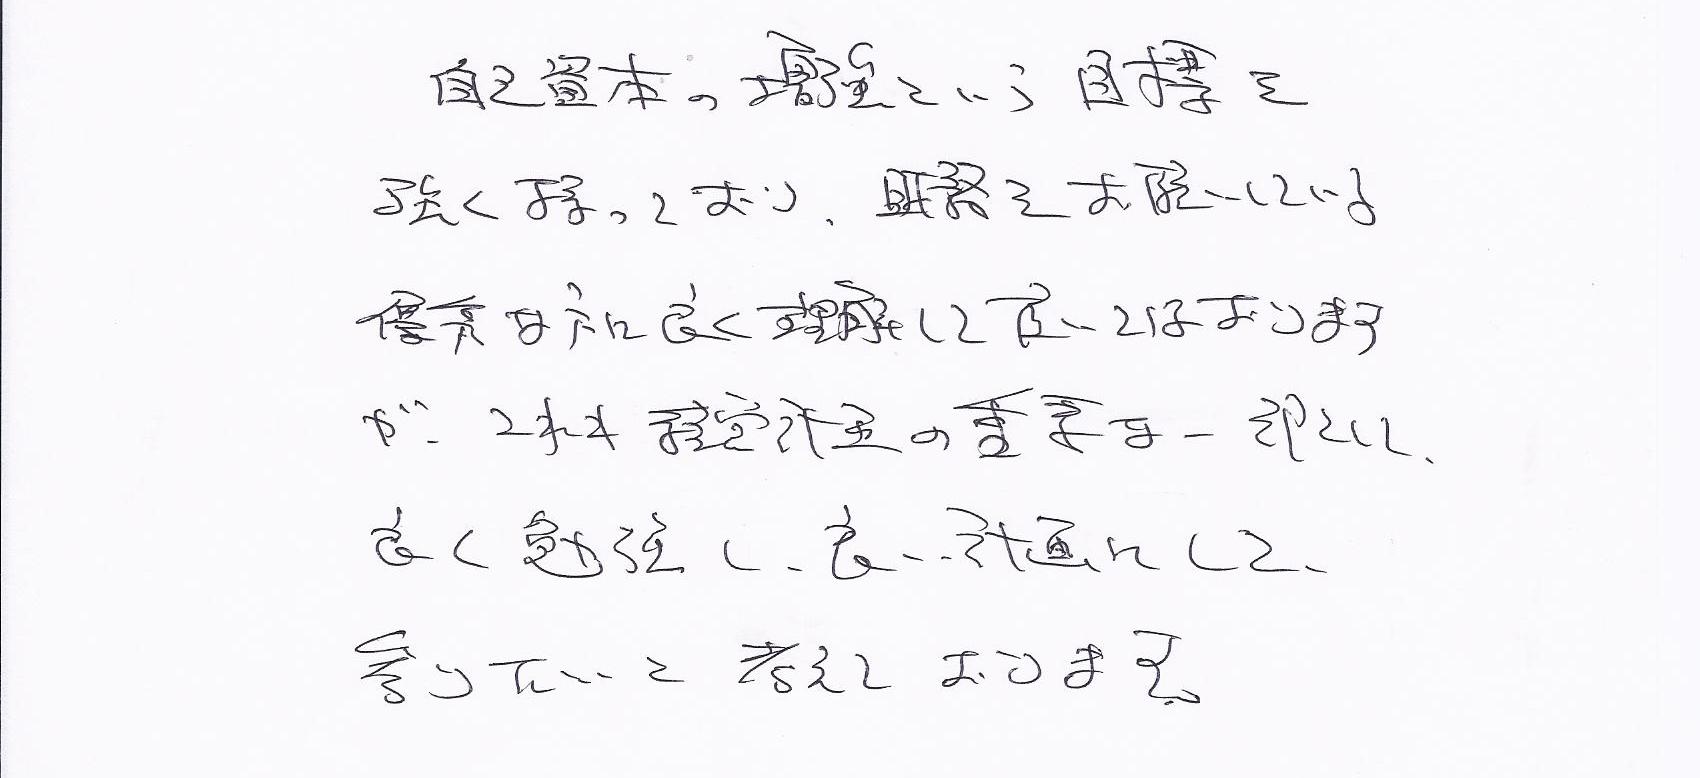 自己資本の増強という目標を
強く持っており、既終をお願いしている
優秀な方に良く理解して頂いてはおります
が、それも経営計画の重要な一部として、
良く勉強し、良い計画にして、
参りたいと考えております。